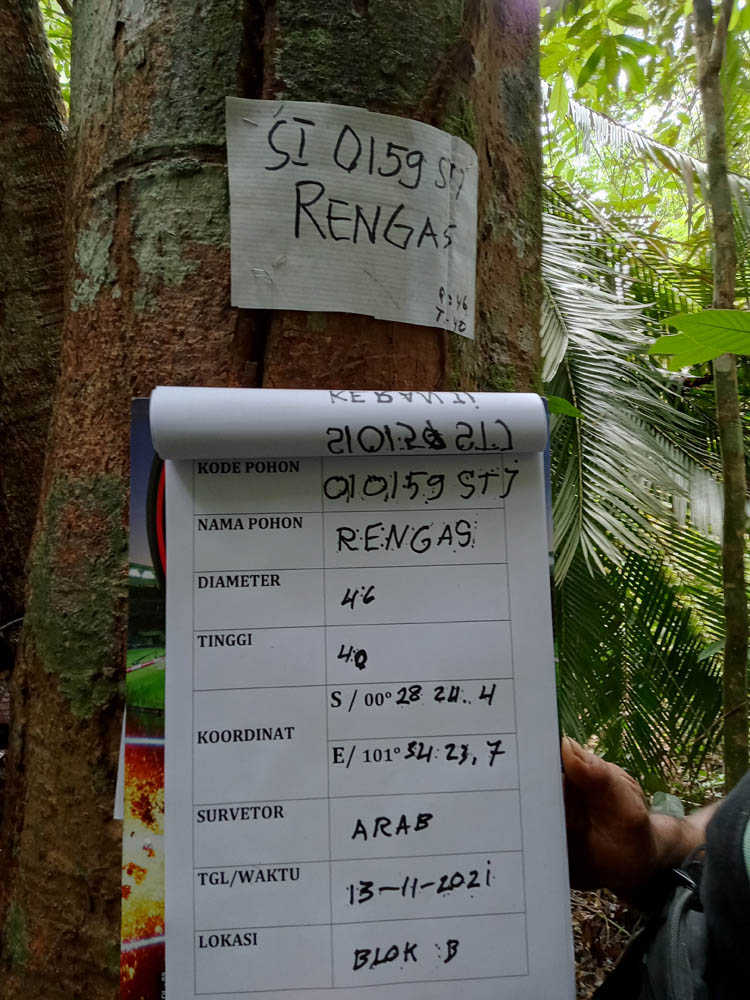 SI 0159 STJ
RENGAS
P: 46
T: 40
KERANJI
KODE POHON 010159 STJ
NAMA POHON RENGAS
DIAMETER 46
TINGGI 40
KOORDINAT
S / 00° 28 24.. 4
E/ 101° 34: 23, 7
SURVETOR ARAB
TGL/WAKTU 13-11-2021
LOKASI BLOK B